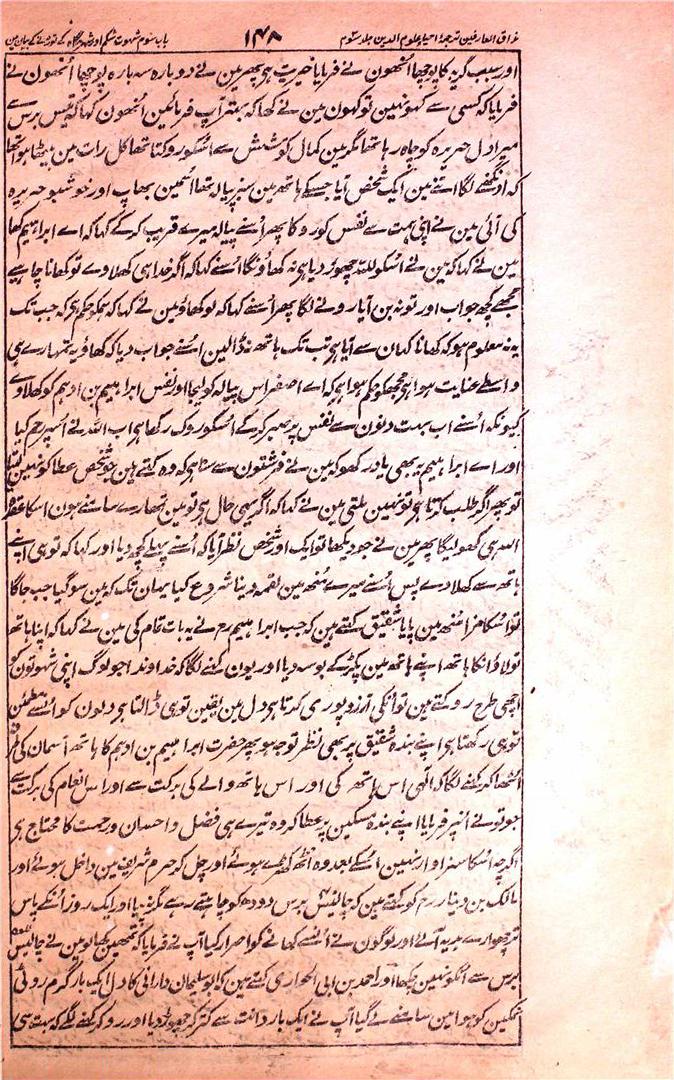 مذاق العارفین ترجمۂ احیاء علوم الدین جلد سوم ۱۴۸ باب سوم شہوت شکم اور شرمگاہ کے توڑنے کے بیان مین
اور سبب گریہ کا پوچھا اُنھون نے فرمایا خیریت ہی پھر مین نے دوبارہ سہ بارہ پوچھا اُنھون نے
فرمایا کہ کسی سے کہو نہین تو کہون مین نے کہا کہ بہتر آپ فرمائین اُنھون کہا کہ تیس برس سے
میرا دل حریرہ کو چاہ رہا تھا مگر مین کمال کوشش سے اُسکو روکتا تھا کل رات مین بیٹھا ہوا تھا
کہ اونگھنے لگا اتنے مین ایک شخص آیا جسکے ہاتھ مین سبز پیالہ تھا اُسمین بھاپ اور خوشبو حریرہ
کی آئی مین نے اپنی ہمت سے نفس کو روکا پھر اُسنے پیالہ میرے قریب کرکے کہا کہ اے ابراہیم کھا
مین نے کہا کہ مین نے اسکو للہ چھوڑ دیا ہی نہ کھاؤنگا اُسنے کہا کہ اگر خدا ہی کھلاوے تو کھانا چاہیے
مجھے کچھ جواب اور تو نہ بن آیا رونے لگا پھر اُسنے کہا کہ لو کھاؤ مین نے کہا کہ ہمکو حکم ہی کہ جب تک
یہ نہ معلوم ہو کہ کھانا کہان سے آیا ہی تب تک ہاتھ نہ ڈالین اُسنے جواب دیا کہ کھاؤ یہ تمھارے ہی
واسطے عنایت ہوا ہی مجھکو حکم ہوا ہی کہ اے اس پیالہ کو لیجا اور نفس ابراہیم بن ادہم کو کھلاوے
کیونکہ اُسنے اب بہت دنون سے نفس پر صبر کرکے اُسکو روک رکھا ہی اب اللہ نے اُسپر رحم کیا
اور اے ابراہیم یہ بھی یاد رکھو کہ مین نے فرشتون سے سنا ہی کہ وہ کہتے ہین جو شخص عطا کو نہین لیتا
تو پھر اگر طلب کرتا ہی تو نہین ملتی مین نے کہا کہ اگر یہی حال ہی تو مین تمھارے سامنے ہون اسکا عقدہ
اللہ ہی کھولیگا پھر مین نے جو دیکھا تو ایک اور شخص نظر آیا کہ اُسنے پہلے کو کچھ دیا اور کہا کہ تو ہی اپنے
ہاتھ سے کھلادے پس اُسنے میرے منھ مین لقمہ دینا شروع کیا یہان تک کہ مین سو گیا جب جاگا
تو اُسکا مزا منھ مین پایا شقیق کہتے ہین کہ جب ابراہیم رح نے یہ بات تمام کی مین نے کہا کہ اپنا ہاتھ
تو لاؤ انکا ہاتھ اپنے ہاتھ مین پکڑ کے بوسہ دیا اور یون کہنے لگا کہ خداوندا جو لوگ اپنی شہوتون کو
اچھی طرح روکتے ہین تو اُنکی آرزو پوری کرتا ہی دل مین یقین تو ہی ڈالتا ہی دلون کو اُسنے مطمئن
تو ہی رکھتا ہی اپنے بندہ شقیق پر بھی نظر توجہ ہو پھر حضرت ابراہیم بن ادہم کا ہاتھ آسمان کی طرف
اُٹھا کر کہنے لگا کہ الٰہی اس ہاتھ کی اور اس ہاتھ والے کی برکت سے اور اس انعام کی برکت سے
جو تونے اُنپر فرمایا اپنے بندہ مسکین پر عطا کر وہ تیرے ہی فضل و احسان و رحمت کا محتاج ہی
اگرچہ اُسکا سزاوار نہین اُسکے بعد وہ اُٹھ کھڑے ہوئے اور چل کر حرم شریف مین داخل ہوئے اور
مالک بن دینار رح کو کہتے ہین کہ چالیس برس دودھ کو چاہتے رہے مگر نہ پیا اور ایک روز اُنکے پاس
تر چھوارے ہدیہ آئے اور لوگون نے اُنسے کھانے کو اصرار کیا آپ نے فرمایا کہ تمھین کھا لو مین نے چالیس
برس سے اُنکو نہین چکھا اور احمد بن ابی الحواری کہتے ہین کہ ابو سلیمان دارانی کا دل ایک بار گرم روٹی
نمکین کو ہوا مین سامنے لے گیا آپ نے ایک بار دانت سے کتر کر چھوڑ دیا اور رو کر کہنے لگے کہ بہت سی